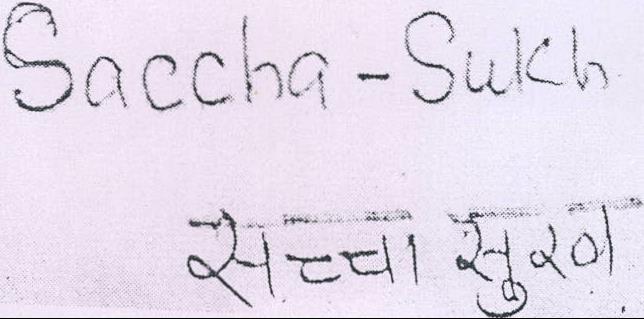 Saccha-Sukh
सच्चा सुख